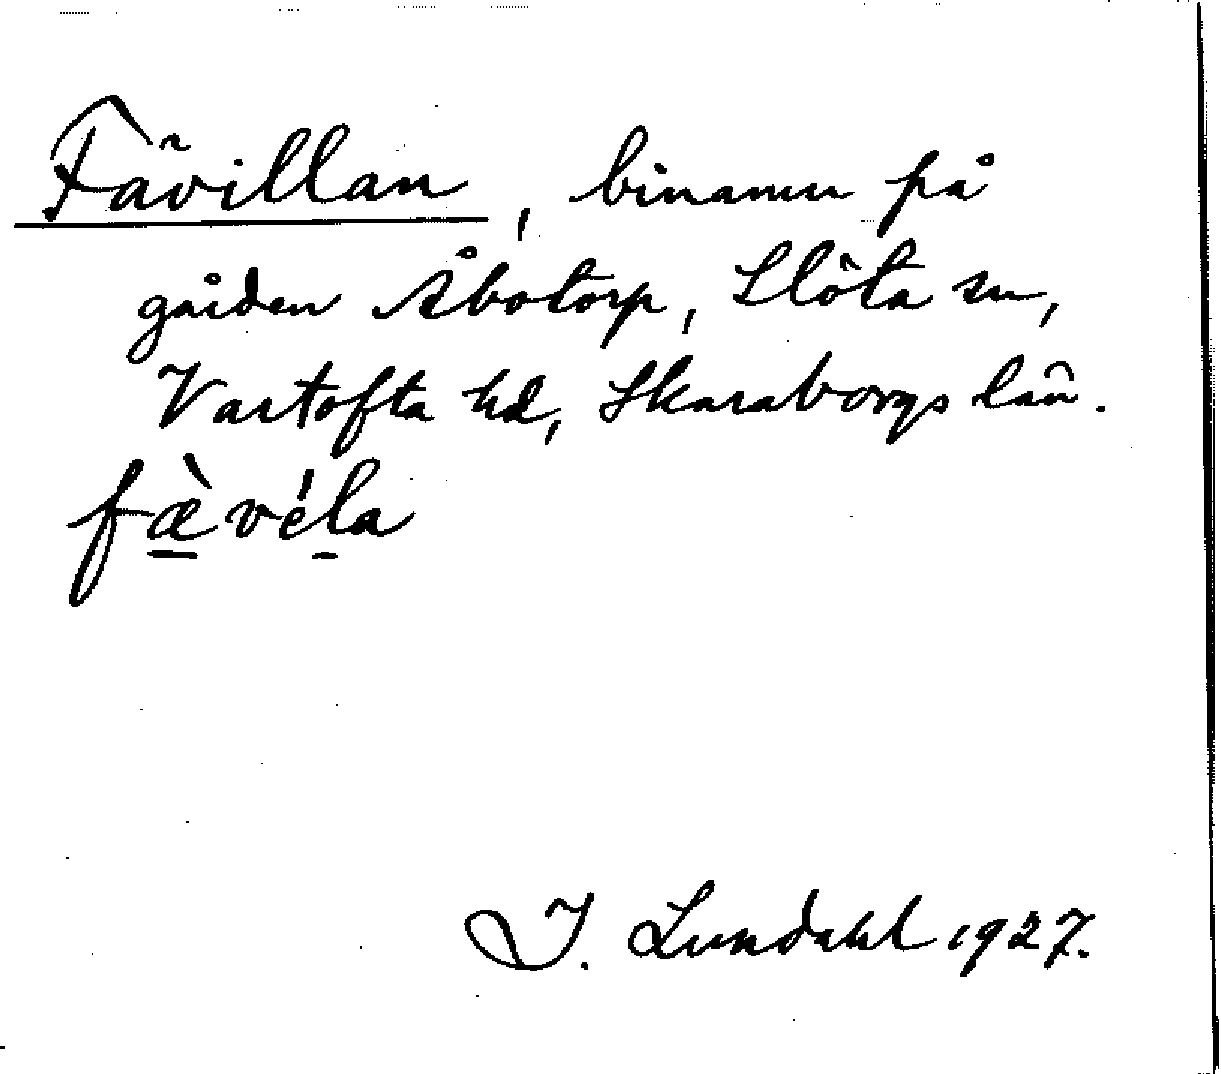 Fävillan, binamn på
gården Åbotorp, Slöta sn,
Vartofta hd, Skaraborgs län.
fæ̀véla
I. Lundahl 1927.